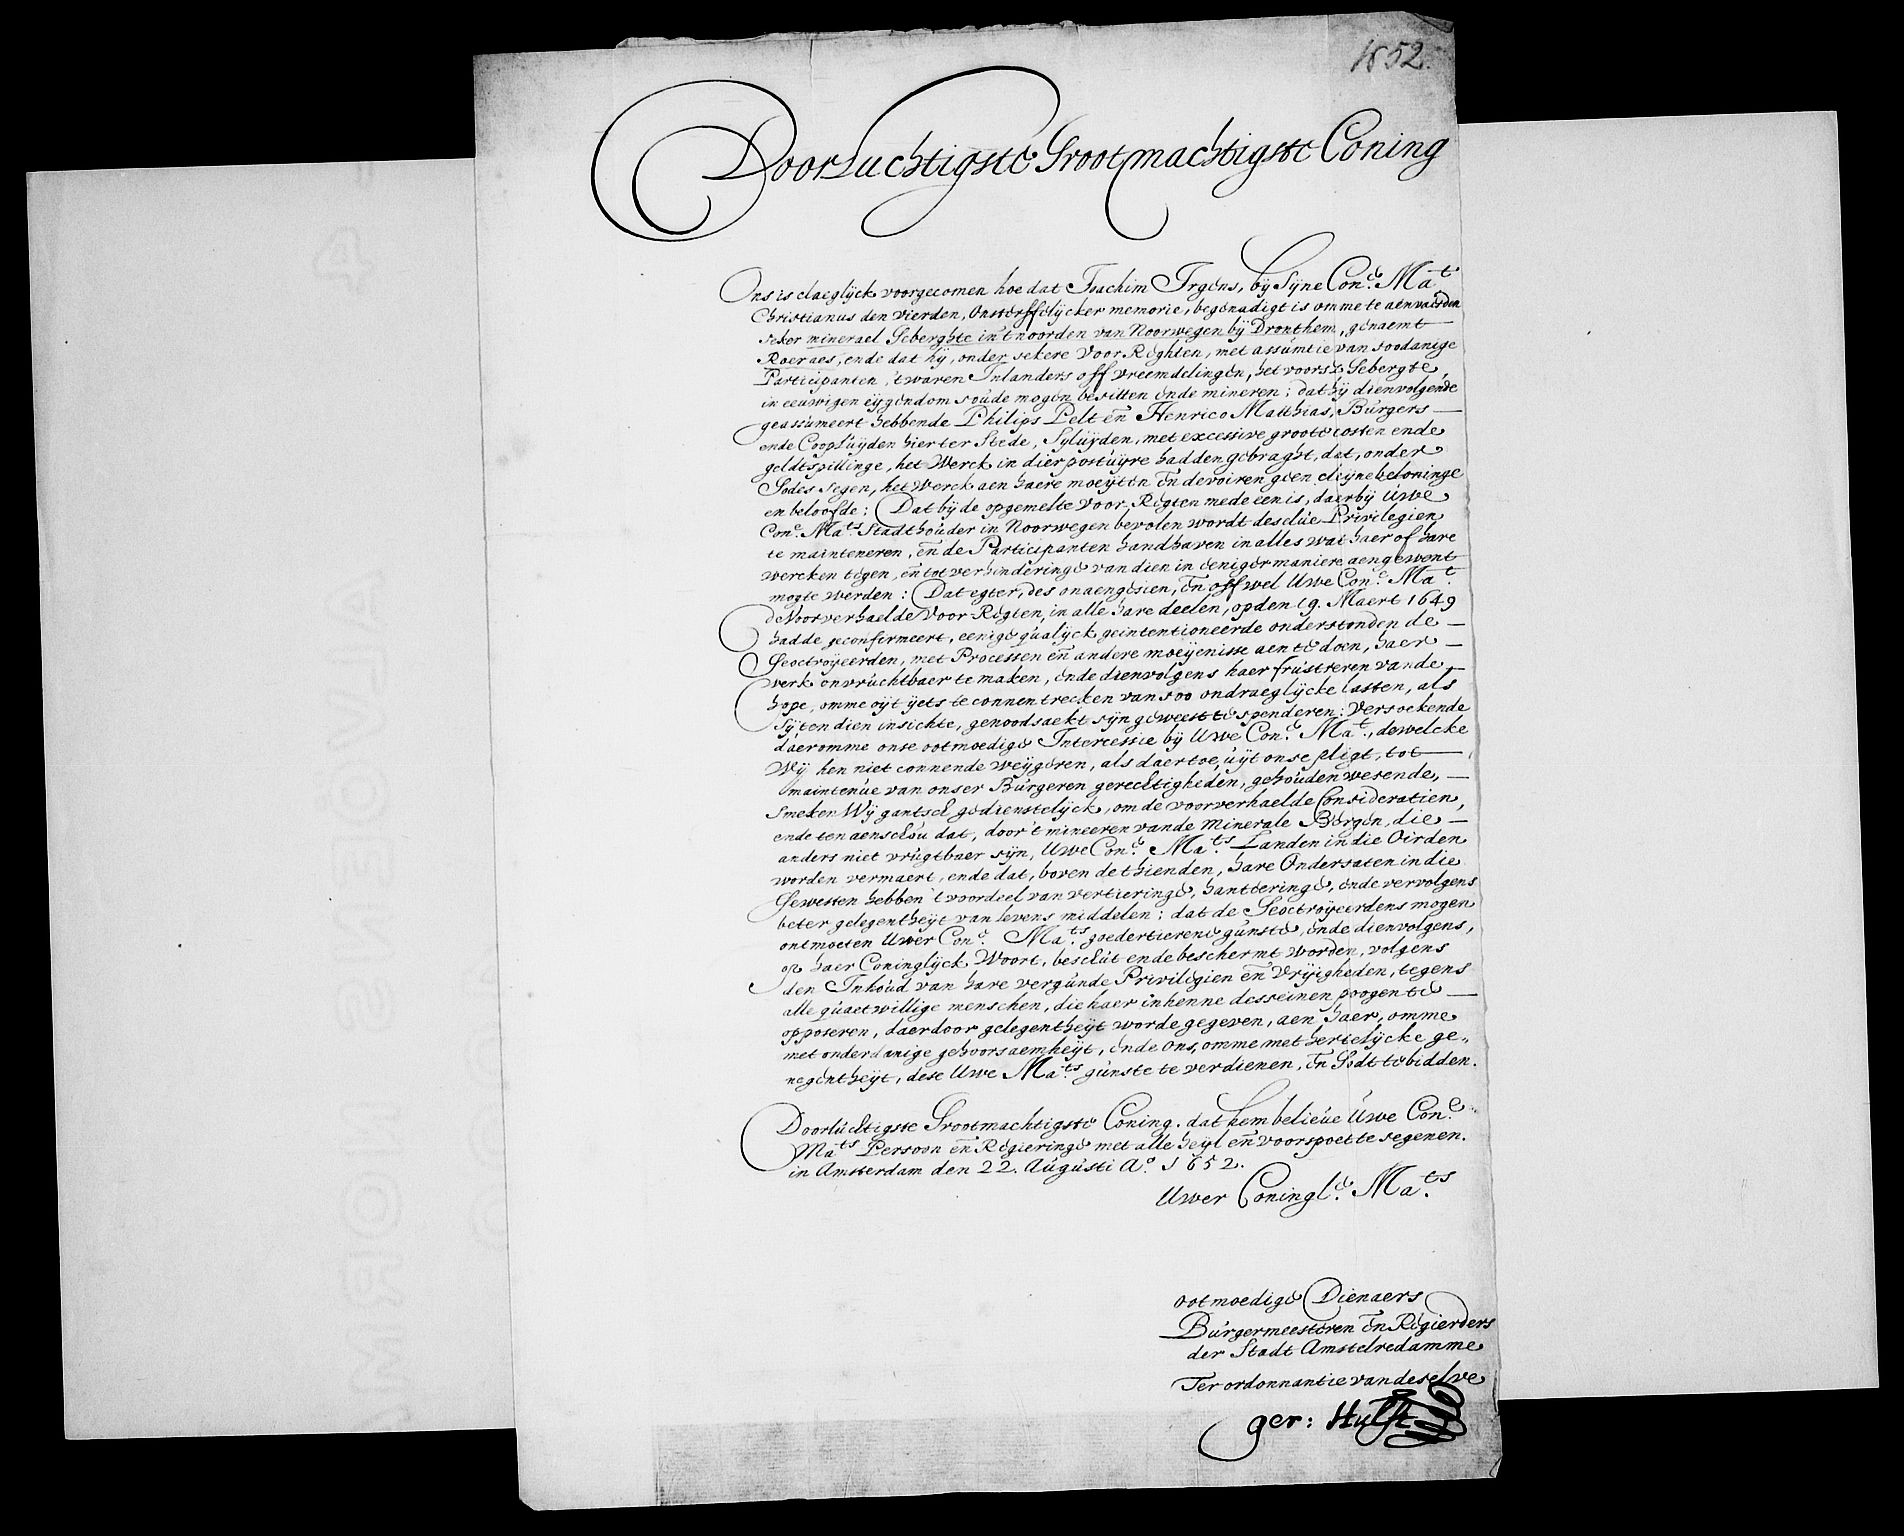 1652.
Doorluchtigste Grootmachtigste Coning
Ons is claeglijck voorgecomen hoe dat Joachim Irgens, bij Sijne Con.e Ma.t
Christianus den vierden, Onsterffelijcker memorie, begenadigt is omme te aenvaerden
seker minerael Geberghte in 't noorden van Noorwegen bij Dronthem, genaemt
Roeraes, ende dat hij, onder sekere Voor-Reghten, met assumtie van soodanige
Participanten, 't waren Inlanders off vreemdelingen, het voorsz. Gebergte,
in eeuwigen eijgendom soude mogen besitten ende mineren; dat hij dienvolgende
geassumeert hebbende Philips Pelt en Henrico Matthias, Burgers
ende Coopluijden hier ter Stede, Sijluijden, met excessive groote costen ende
geldtspillinge, het Werck in dier postuijre hadden gebraght, dat, onder
Godes segen, het Werck aen haere moeijten en devoiren geen cleijne beloninge
en beloofde: Dat bij de opgemelte Voor-Regten mede een is, daer bij Uwe
Con.e Ma.ts Stadthouder in Noorwegen bevolen wordt deselve Privilegien
te mainteneren, en de Participanten handhaven in alles wat haer of hare
wercken tegen, en tot verhinderinge van dien in eeniger maniere aengewent
mogte werden: Dat egter, des onaengesien, en off wel Uwe Con.e Ma.t
de Voorverhaelde Voor-Regten, in alle hare deelen, op den 19. Maert 1649
hadde geconfermeert, eenige qualijck geintentioneerde onderstonden de
Geoctroijeerden, met Processen en andere moeijenisse aen te doen, haer
werk onvruchtbaer te maken, ende dienvolgens haer frustreren vande
hope, omme oijt ijets te connen trecken van soo ondraeglijcke lasten, als
sij ten dien insichte, genoodsaekt sijn geweest te spenderen: Versoekende
daeromme onse ootmoedige Intercessie bij Uwe Con.e Ma.t, dewelcke
Wij hen niet connende weijgeren, als daer toe, uijt onse pligt, tot
maintenue van onser Burgeren gerechtigheden, gehouden wesende,
Smeken Wij gantsch gedienstelijck, om de voorverhaelde Consideratien,
ende ten aenschou dat, door 't mineeren vande Minerale Bergen, die
anders niet vrugtbaer sijn, Uwe Con.e Ma.ts Landen in die Oirden
worden vermaert, ende dat, boven de thienden, hare Ondersaten in die
Gewesten hebben 't voordeel van vertieringe, hanteringe, ende vervolgens
beter gelegentheijt van levens middelen; dat de Geoctroijeerdens mogen
ontmoeten Uwer Con.e Ma.ts goedertierene gunste, ende dienvolgens,
op haer Coninglijck Woort, beschut ende beschermt worden, volgens
den Inhoud van hare vergunde Privilegien en Vrijigheden, tegens
alle quaetwillige menschen, die haer in henne desseinen poogen te
opposeren, daer door gelegentheijt worde gegeven, aen haer, omme
met onderdanige gehoorsaemheijt, ende Ons, omme met hertelijcke ge-
negentheijt, dese Uwe Ma.ts gunste te verdienen, en Godt te bidden.
Doorluchtigste Grootmachtigste Coning. dat hem believe Uwe Con.e
Ma.ts Persoon en Regieringe met alle heijl en voorspoet te segenen.
in Amsterdam den 22. Augusti A.o 1652.
Uwer Coningl.e Ma.ts
ootmoedige Dienaers
Burgermeesteren en Regierders
der Stadt Amstelredamme
Ter ordonnantie van deselve
ger: Hulft